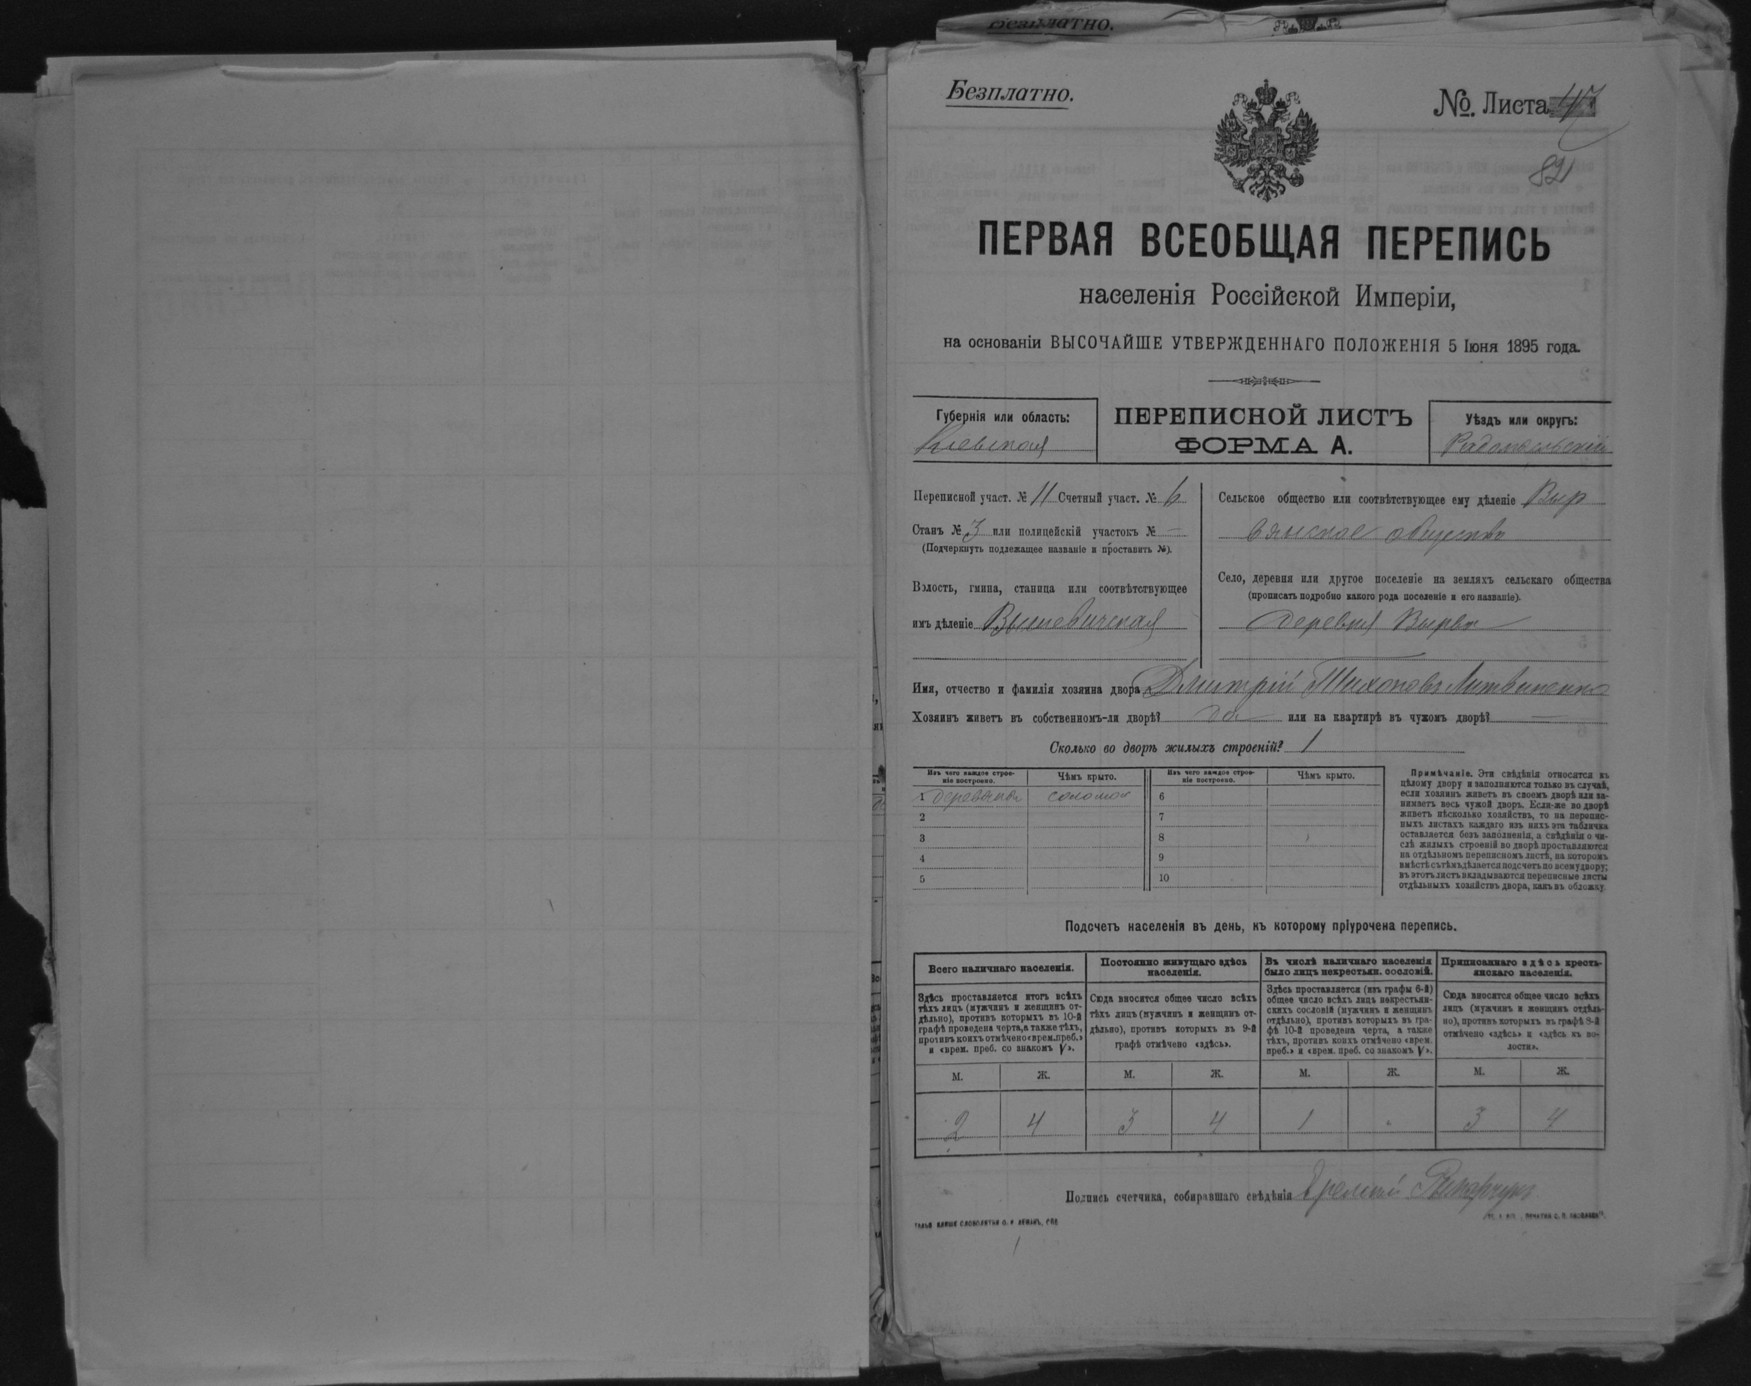 Безплатно.
Безплатно.
№. Листа 47
82
ПЕРВАЯ ВСЕОБЩАЯ ПЕРЕПИСЬ
населенія Россійской Имперіи,
на основаніи ВЫСОЧАЙШЕ УТВЕРЖДЕННАГО ПОЛОЖЕНІЯ 5 Іюня 1895 года.
Губернія или область:
Кіевская
ПЕРЕПИСНОЙ ЛИСТЪ
ФОРМА А.
Уѣздъ или округъ:
Радомысльскій
Переписной участ. № 11 Счетный участ. № 6
Станъ № 3 или полицейскій участокъ № —
(Подчеркнуть подлежащее названіе и проставить №).
Волость, гмина, станица или соотвѣтствующее
имъ дѣленіе Вышевичская
Сельское общество или соотвѣтствующее ему дѣленіе Выр
вянское общество
Село, деревня или другое поселеніе на земляхъ сельскаго общества
(прописать подробно какого рода поселеніе и его названіе).
деревня Вырва
Имя, отчество и фамилія хозяина двора Дмитрій Тихоновъ Литвиненко
Хозяинъ живетъ въ собственномъ-ли дворѣ? да или на квартирѣ въ чужомъ дворѣ? —
Сколько во дворѣ жилыхъ строеній? 1
Изъ чего каждое строе-
ніе построено.
Чѣмъ крыто.
Изъ чего каждое строе-
ніе построено.
Чѣмъ крыто.
1 соломой 6
2 7
3 8
4 9
5 10
Примѣчаніе. Эти свѣдѣнія относятся къ
цѣлому двору и заполняются только въ случаѣ,
если хозяинъ живетъ въ своемъ дворѣ или за-
нимаетъ весь чужой дворъ. Если-же во дворѣ
живетъ нѣсколько хозяйствъ, то на перепис-
ныхъ листахъ каждаго изъ нихъ эта табличка
оставляется безъ заполненія, а свѣдѣнія о чи-
слѣ жилыхъ строеній во дворѣ проставляются
на отдѣльномъ переписномъ листѣ, на которомъ
вмѣстѣ съ тѣмъ дѣлается подсчетъ по всему двору;
въ этотъ листъ вкладываются переписные листы
отдѣльныхъ хозяйствъ двора, какъ въ обложку.
Подсчетъ населенія въ день, къ которому пріурочена перепись.
Всего наличнаго населенія.
Здѣсь проставляется итогъ всѣхъ
тѣхъ лицъ (мужчинъ и женщинъ от-
дѣльно), противъ которыхъ въ 10-й
графѣ проведена черта, а также тѣхъ,
противъ коихъ отмѣчено «врем. преб.»
и «врем. преб. со знакомъ V».
М. Ж.
2 4
Постоянно живущаго здѣсь
населенія.
Сюда вносится общее число всѣхъ
тѣхъ лицъ (мужчинъ и женщинъ от-
дѣльно), противъ которыхъ въ 9-й
графѣ отмѣчено «здѣсь».
М. Ж.
3 4
Въ числѣ наличнаго населенія
было лицъ некрестьян. сословій.
Здѣсь проставляется (изъ графы 6-й)
общее число всѣхъ лицъ некрестьян-
скихъ сословій (мужчинъ и женщинъ
отдѣльно), противъ которыхъ въ гра-
фѣ 10-й проведена черта, а также
тѣхъ, противъ коихъ отмѣчено «врем.
преб.» и «врем. преб. со знакомъ V».
М. Ж.
1
Приписаннаго здѣсь кресть-
янскаго населенія.
Сюда вносится общее число всѣхъ
лицъ (мужчинъ и женщинъ отдѣль-
но), противъ которыхъ въ графѣ 8-й
отмѣчено «здѣсь» и «здѣсь къ во-
лости».
М. Ж.
3 4
Подпись счетчика, собиравшаго свѣдѣнія